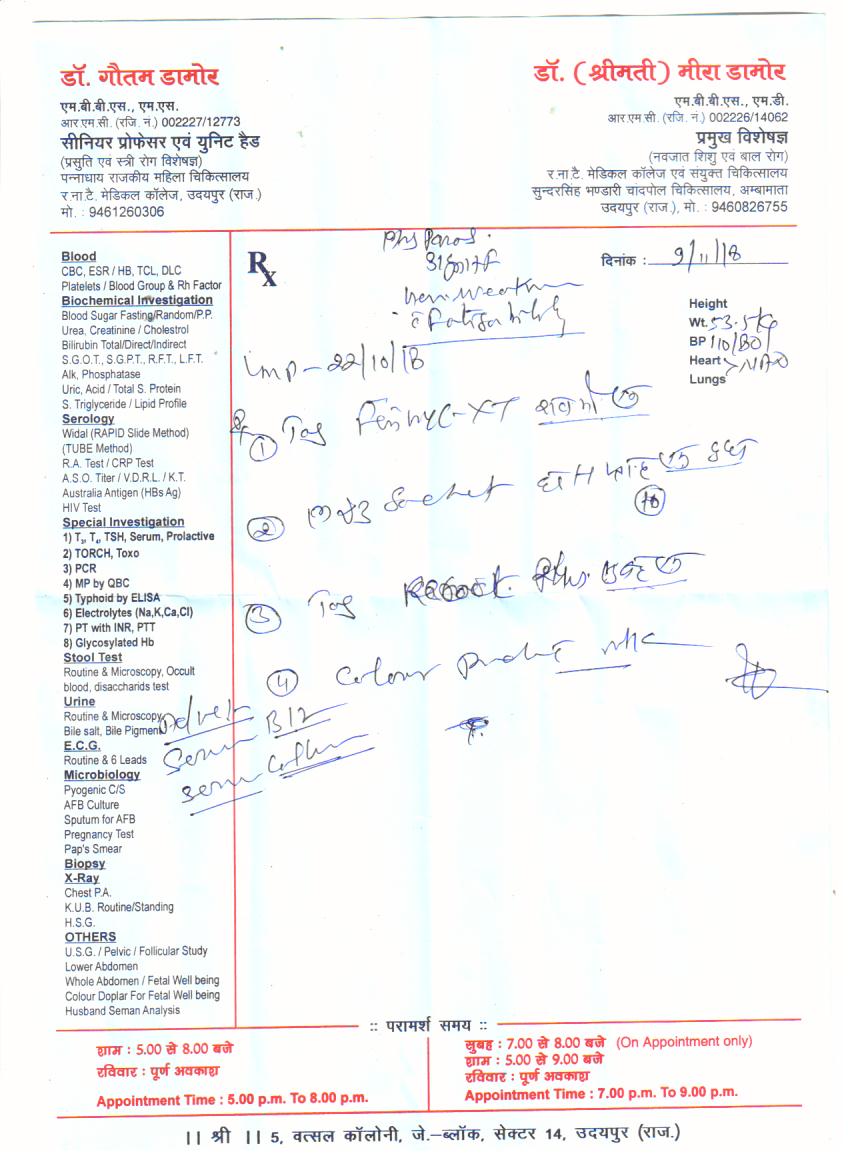 डॉ. गौतम डामोर
एम.बी.बी.एस., एम.एस.
आर.एम.सी. (रजि. नं.) 002227/12773
सीनियर प्रोफेसर एवं युनिट हैड
(प्रसुति एवं स्त्री रोग विशेषज्ञ)
पन्नाधाय राजकीय महिला चिकित्सालय
र.ना.टै. मेडिकल कॉलेज, उदयपुर (राज.)
मो. : 9461260306
डॉ. (श्रीमती) मीरा डामोर
एम.बी.बी.एस., एम.डी.
आर.एम.सी. (रजि. नं.) 002226/14062
प्रमुख विशेषज्ञ
(नवजात शिशु एवं बाल रोग)
र.ना.टै. मेडिकल कॉलेज एवं संयुक्त चिकित्सालय
सुन्दरसिंह भण्डारी चांदपोल चिकित्सालय, अम्बामाता
उदयपुर (राज.), मो. : 9460826755
Blood
CBC, ESR / HB, TCL, DLC
Platelets / Blood Group & Rh Factor
Biochemical Investigation
Blood Sugar Fasting/Random/P.P.
Urea, Creatinine / Cholestrol
Bilirubin Total/Direct/Indirect
S.G.O.T., S.G.P.T., R.F.T., L.F.T.
Alk, Phosphatase
Uric, Acid / Total S. Protein
S. Triglyceride / Lipid Profile
Serology
Widal (RAPID Slide Method)
(TUBE Method)
R.A. Test / CRP Test
A.S.O. Titer / V.D.R.L. / K.T.
Australia Antigen (HBs Ag)
HIV Test
Special Investigation
1) T3, T4, TSH, Serum, Prolactive
2) TORCH, Toxo
3) PCR
4) MP by QBC
5) Typhoid by ELISA
6) Electrolytes (Na,K,Ca,Cl)
7) PT with INR, PTT
8) Glycosylated Hb
Stool Test
Routine & Microscopy, Occult
blood, disaccharids test
Urine
Routine & Microscopy
Bile salt, Bile Pigment
E.C.G.
Routine & 6 Leads
Microbiology
Pyogenic C/S
AFB Culture
Sputum for AFB
Pregnancy Test
Pap's Smear
Biopsy
X-Ray
Chest P.A.
K.U.B. Routine/Standing
H.S.G.
OTHERS
U.S.G. / Pelvic / Follicular Study
Lower Abdomen
Whole Abdomen / Fetal Well being
Colour Doplar For Fetal Well being
Husband Seman Analysis
Rx
दिनांक : 9/11/18
Height
Wt. 53.5kg
BP 110/80
Heart NAD
Lungs
LMP - 22/10/18
① Tab XT
② Sachet
10
③ Tab Plus
④ Colour
Serum B12
Serum
:: परामर्श समय ::
शाम : 5.00 से 8.00 बजे
रविवार : पूर्ण अवकाश
Appointment Time : 5.00 p.m. To 8.00 p.m.
सुबह : 7.00 से 8.00 बजे (On Appointment only)
शाम : 5.00 से 9.00 बजे
रविवार : पूर्ण अवकाश
Appointment Time : 7.00 p.m. To 9.00 p.m.
|| श्री || 5, वत्सल कॉलोनी, जे.–ब्लॉक, सेक्टर 14, उदयपुर (राज.)